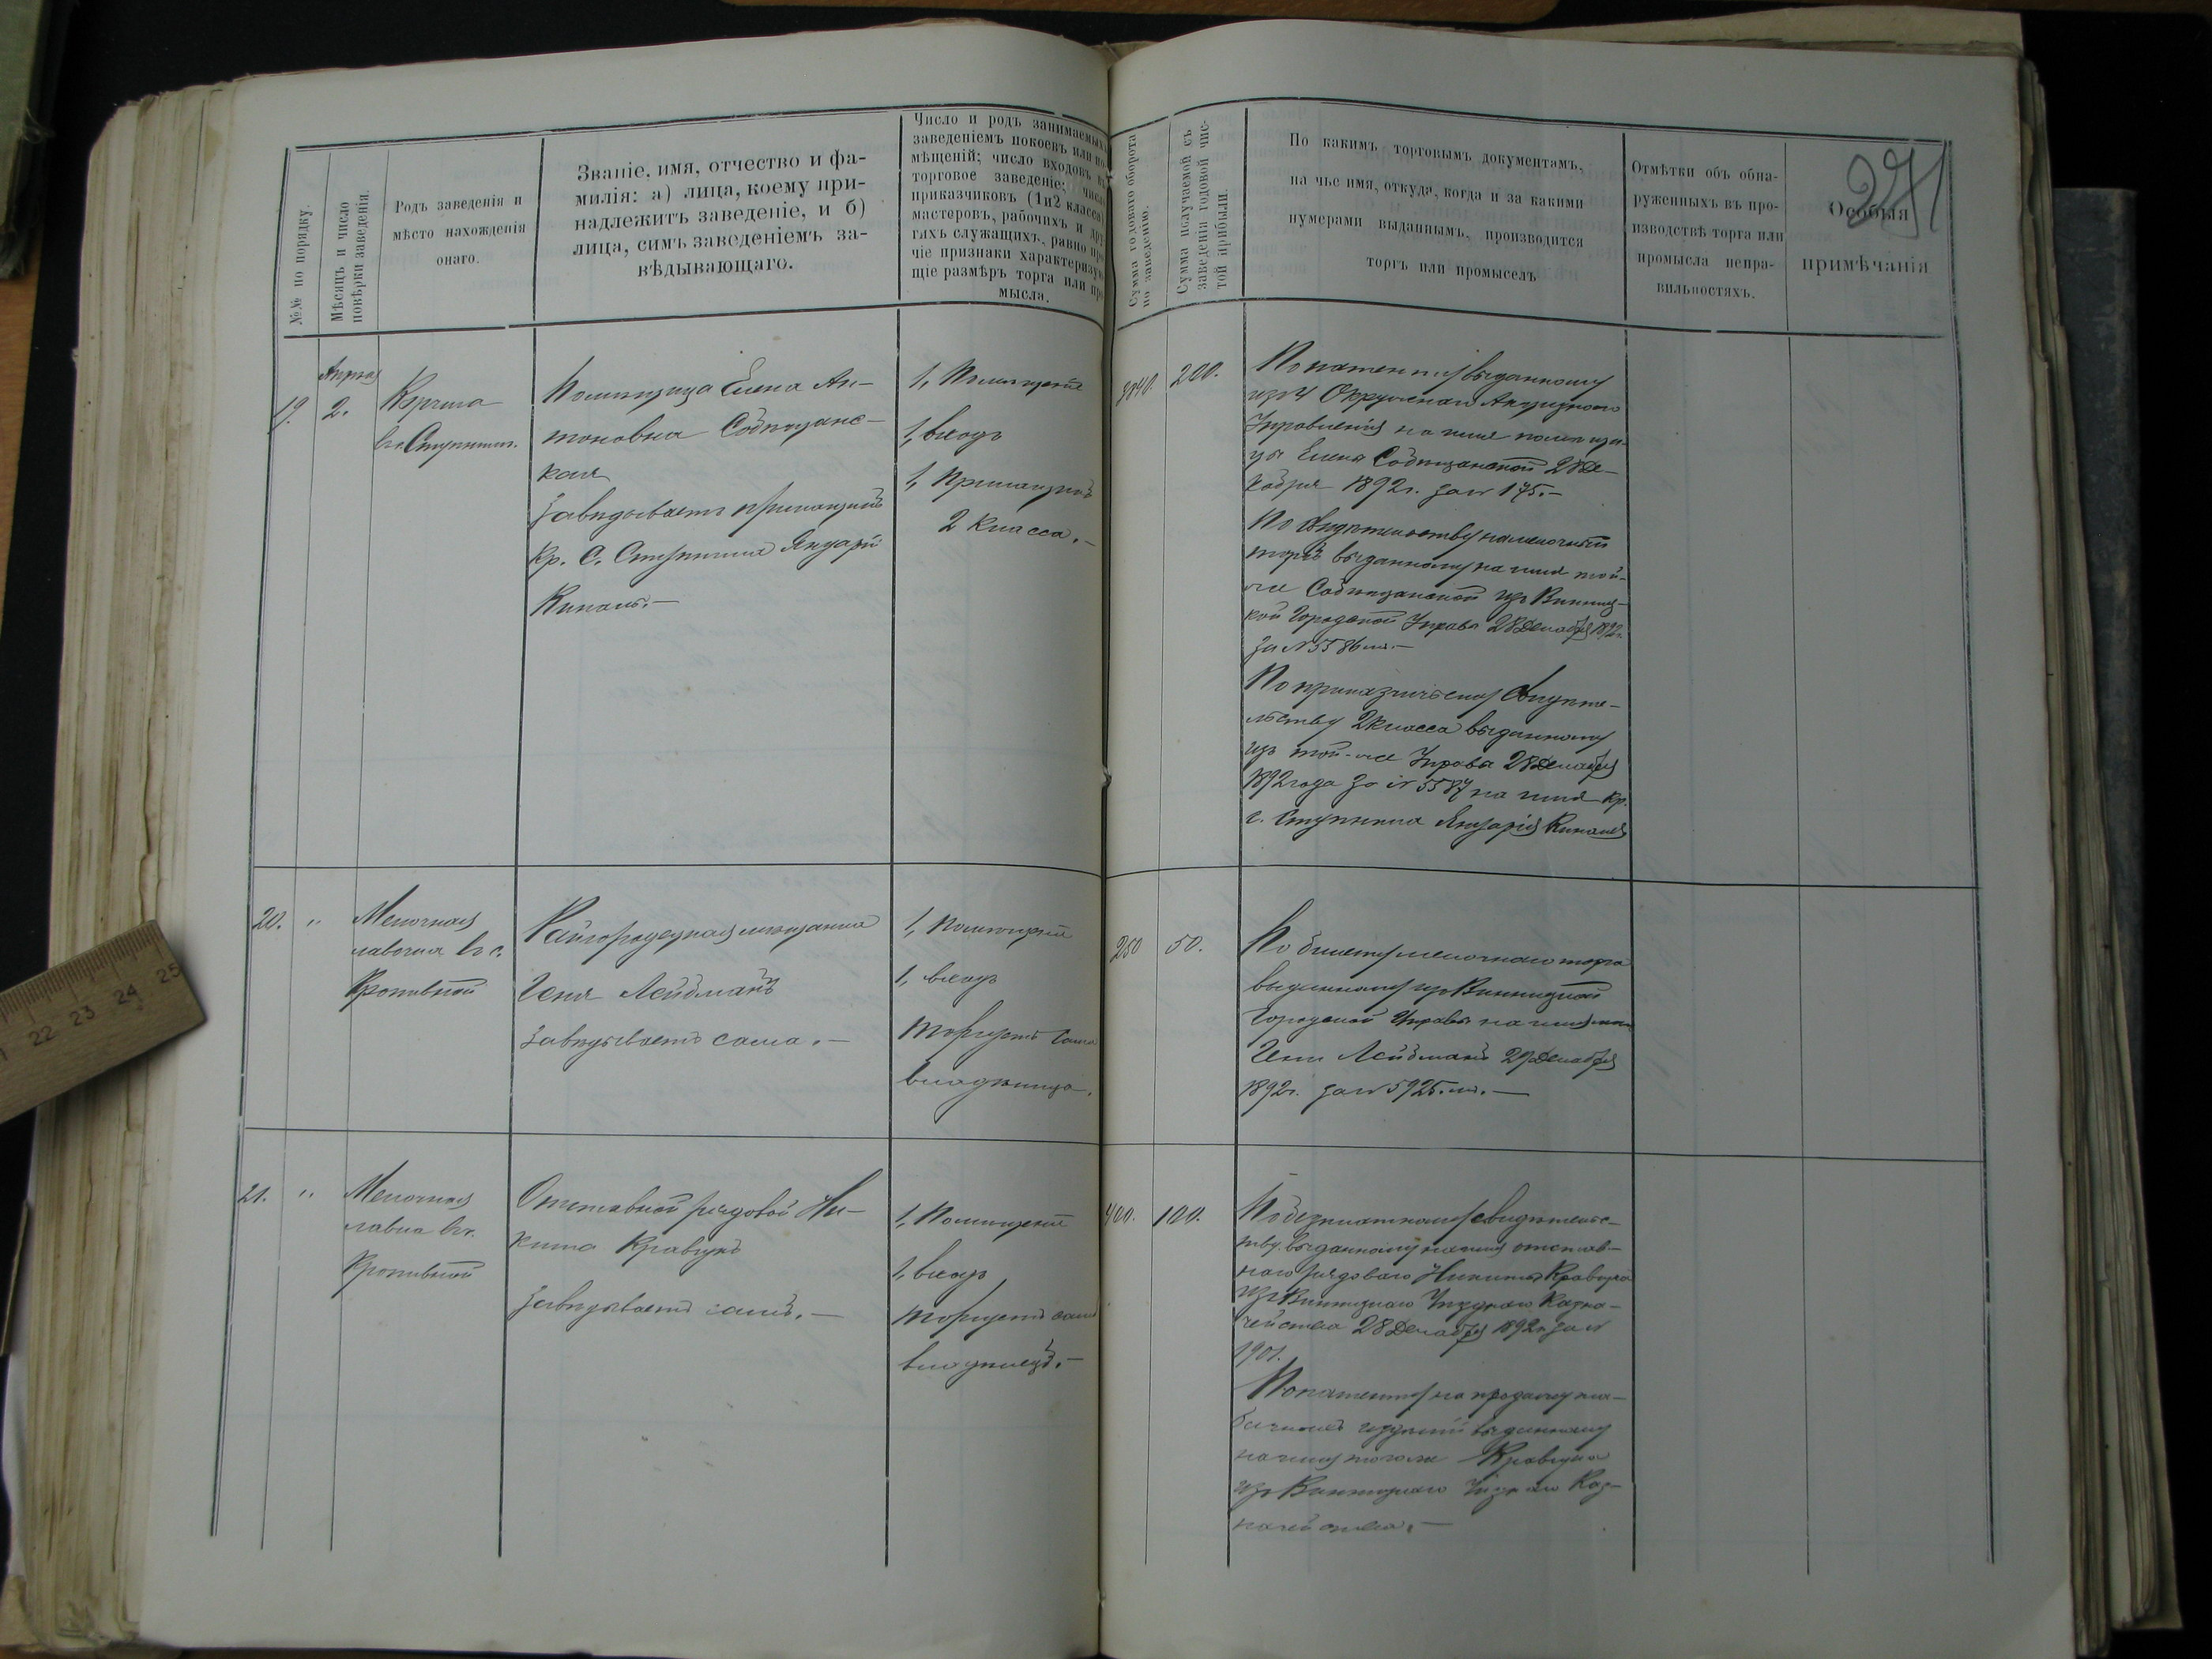 №№ по порядку.
Мѣсяцъ и число
повѣрки заведенія.
Родъ заведенія и
мѣсто нахожденія
онаго.
Званіе, имя, отчество и фа-
милія: а) лица, коему при-
надлежитъ заведеніе, и б)
лица, симъ заведеніемъ за-
вѣдывающаго.
Число и родъ занимаемыхъ
заведеніемъ покоевъ или по-
мѣщеній; число входовъ въ
торговое заведеніе; число
приказчиковъ (1 и 2 класса)
мастеровъ, рабочихъ и дру-
гихъ служащихъ, равно про-
чіе признаки характеризую-
щіе размѣръ торга или про-
мысла.
Сумма годового оборота
по заведенію.
Сумма получаемой съ
заведенія годовой чис-
той прибыли.
По какимъ торговымъ документамъ,
на чье имя, откуда, когда и за какими
нумерами выданнымъ, производится
торгъ или промыселъ
Отмѣтки объ обна-
руженныхъ въ про-
изводствѣ торга или
промысла непра-
вильностяхъ.
Особыя
примѣчанія
271
19.
Апрѣля
2.
Корчма
въ с.
Помѣщица Елена Ан-
тоновна
ская
Завѣдываетъ прикащикъ
кр. с.
1, Помѣщеніе
1, входъ
1, Прикащикъ
2 класса.—
3840.
200.
По патенту выданному
изъ 4 Округа Акцизнаго
Управленія на имя помѣщи-
цы Елены 28 Де-
кабря 1892 г. за № 175.—
По свидѣтельству на мелочный
торгъ выданному на имя той-
же изъ Винниц-
кой Городской Управы 28 Декабря 1892 г.
за № 5586 мъ.—
По приказчичьему свидѣте-
льству 2 класса выданному
изъ той-же Управы 28 Декабря
1892 года за № 5587 на имя кр.
20.
"
Мелочная
лавочка въ с.
Кропивной
Райгородецкая мѣщанка
Геня Лейбманъ
завѣдываетъ сама.—
1, Помѣщеніе
1, входъ
торгуетъ сама
владѣлица.
250
50.
По билету мелочнаго торга
выданному изъ Винницкой
Городской Управы на имя
Гени Лейбманъ 29 Декабря
1892 г. за № 5925. мъ.—
21.
"
Мелочная
лавка въ с.
Кропивной
Отставной рядовой Ни-
кита Кравчукъ
завѣдываетъ самъ.—
1, Помѣщеніе
1, входъ
торгуетъ самъ
владѣлецъ.—
400.
100.
По безплатному свидѣтельс-
тву, выданному на имя отстав-
наго рядоваго Никиты Кравчука
изъ Винницкаго Уѣзднаго Казна-
чейства 28 Декабря 1892 г. за №
1901.
По патенту на продажу та-
бачныхъ издѣлій выданному
на имя того-же Кравчука
изъ Винницкаго Уѣзднаго Каз-
начейства.—